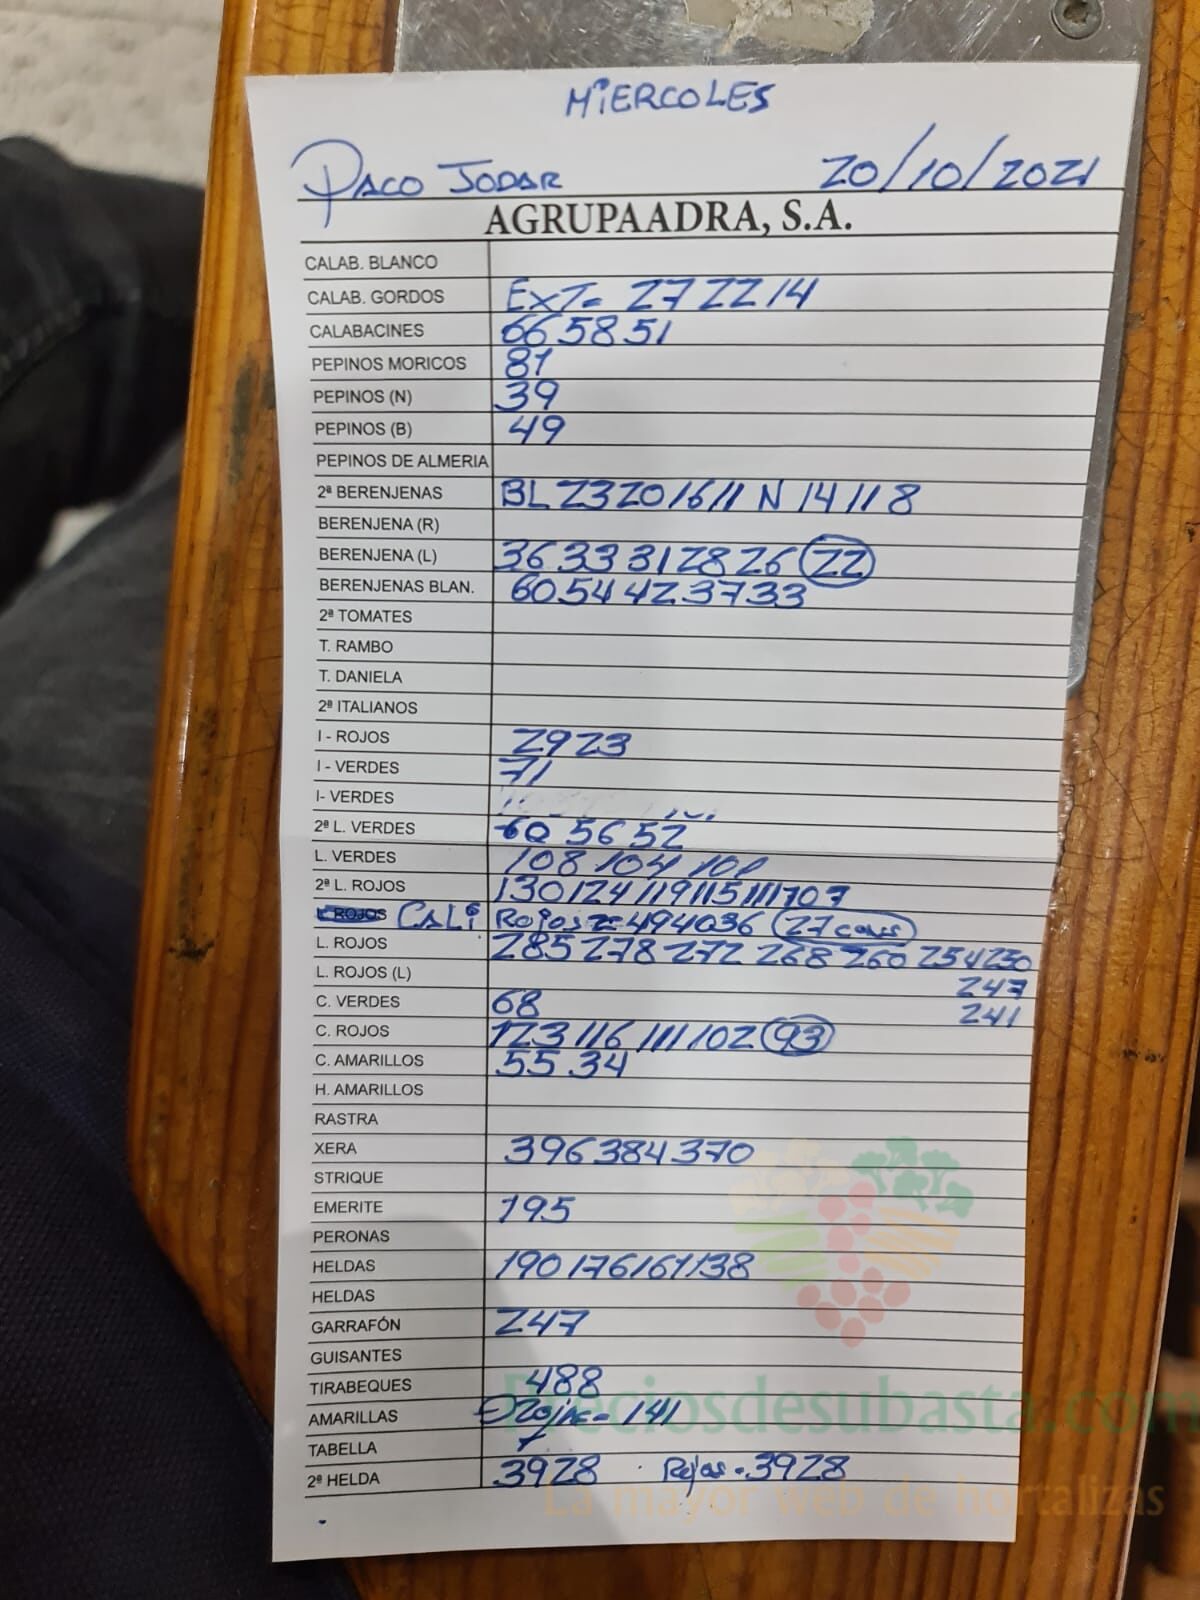 MIERCOLES
PACO JODAR 20/10/2021
AGRUPAADRA, S.A.
CALAB. BLANCO
CALAB. GORDOS EXT- 27 22 14
CALABACINES 66 58 51
PEPINOS MORICOS 81
PEPINOS (N) 39
PEPINOS (B) 49
PEPINOS DE ALMERIA
2ª BERENJENAS BL 23 20 16 11 N 14 11 8
BERENJENA (R)
BERENJENA (L) 36 33 31 28 26 22
BERENJENAS BLAN. 60 54 42 37 33
2ª TOMATES
T. RAMBO
T. DANIELA
2ª ITALIANOS
I - ROJOS 29 23
I - VERDES 71
I- VERDES
2ª L. VERDES 60 56 52
L. VERDES 108 104 100
2ª L. ROJOS 130 124 119 115 111 107
CALI Rojos = 49 40 36
L. ROJOS 285 278 272 268 260 254 250
L. ROJOS (L) 247
C. VERDES 68 241
C. ROJOS 123 116 111 102 93
C. AMARILLOS 55 34
H. AMARILLOS
RASTRA
XERA 396 384 370
STRIQUE
EMERITE 195
PERONAS
HELDAS 190 176 161 138
HELDAS
GARRAFÓN 247
GUISANTES
TIRABEQUES 488
AMARILLAS 141
TABELLA
2ª HELDA 39 28 Rojas - 39 28
Preciosdesubasta.com
La mayor web de hortalizas